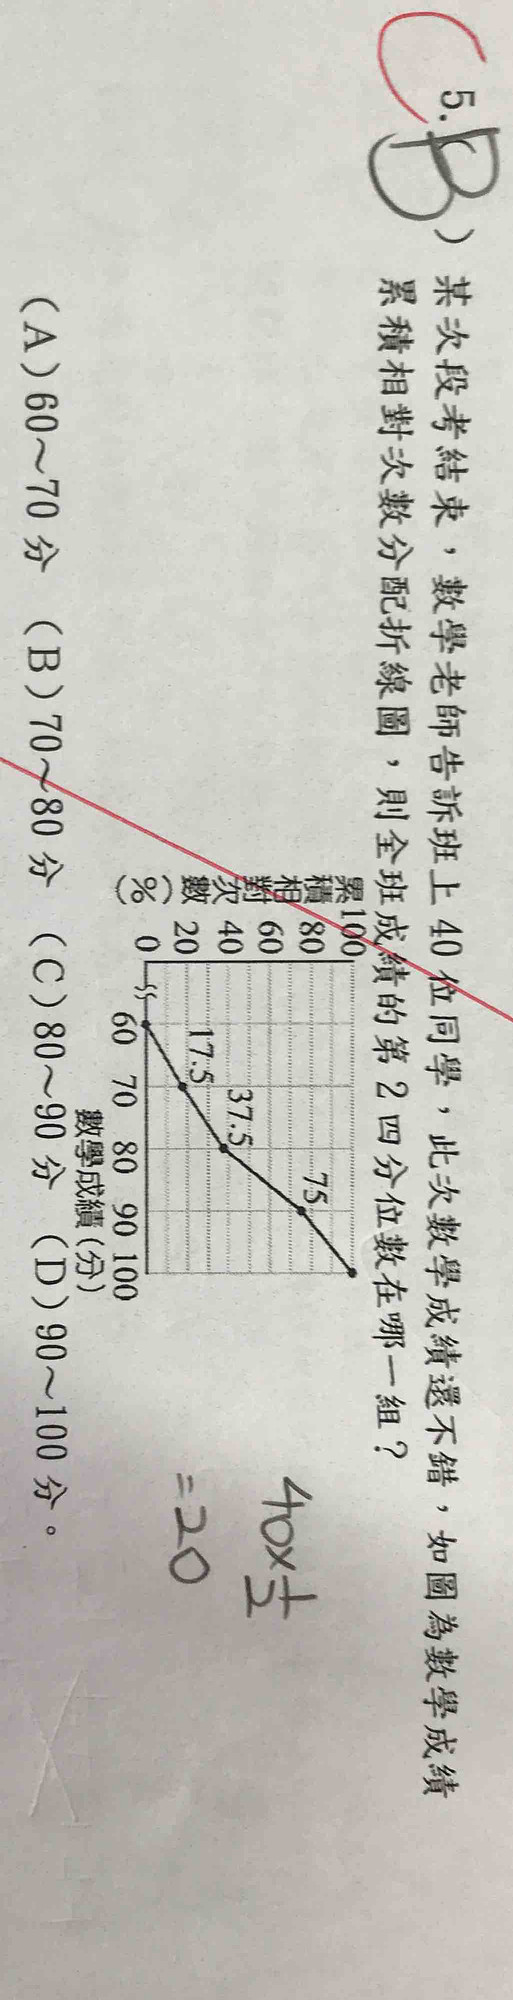 5. B ) 某次段考結束，數學老師告訴班上 40 位同學，此次數學成績還不錯，如圖為數學成績
累積相對次數分配折線圖，則全班成績的第 2 四分位數在哪一組？
累積相對次數（%）
100
80
60
40
20
0
17.5
37.5
75
60 70 80 90 100
數學成績(分)
40×1/2
=20
(A) 60～70 分 (B) 70～80 分 (C) 80～90 分 (D) 90～100 分。